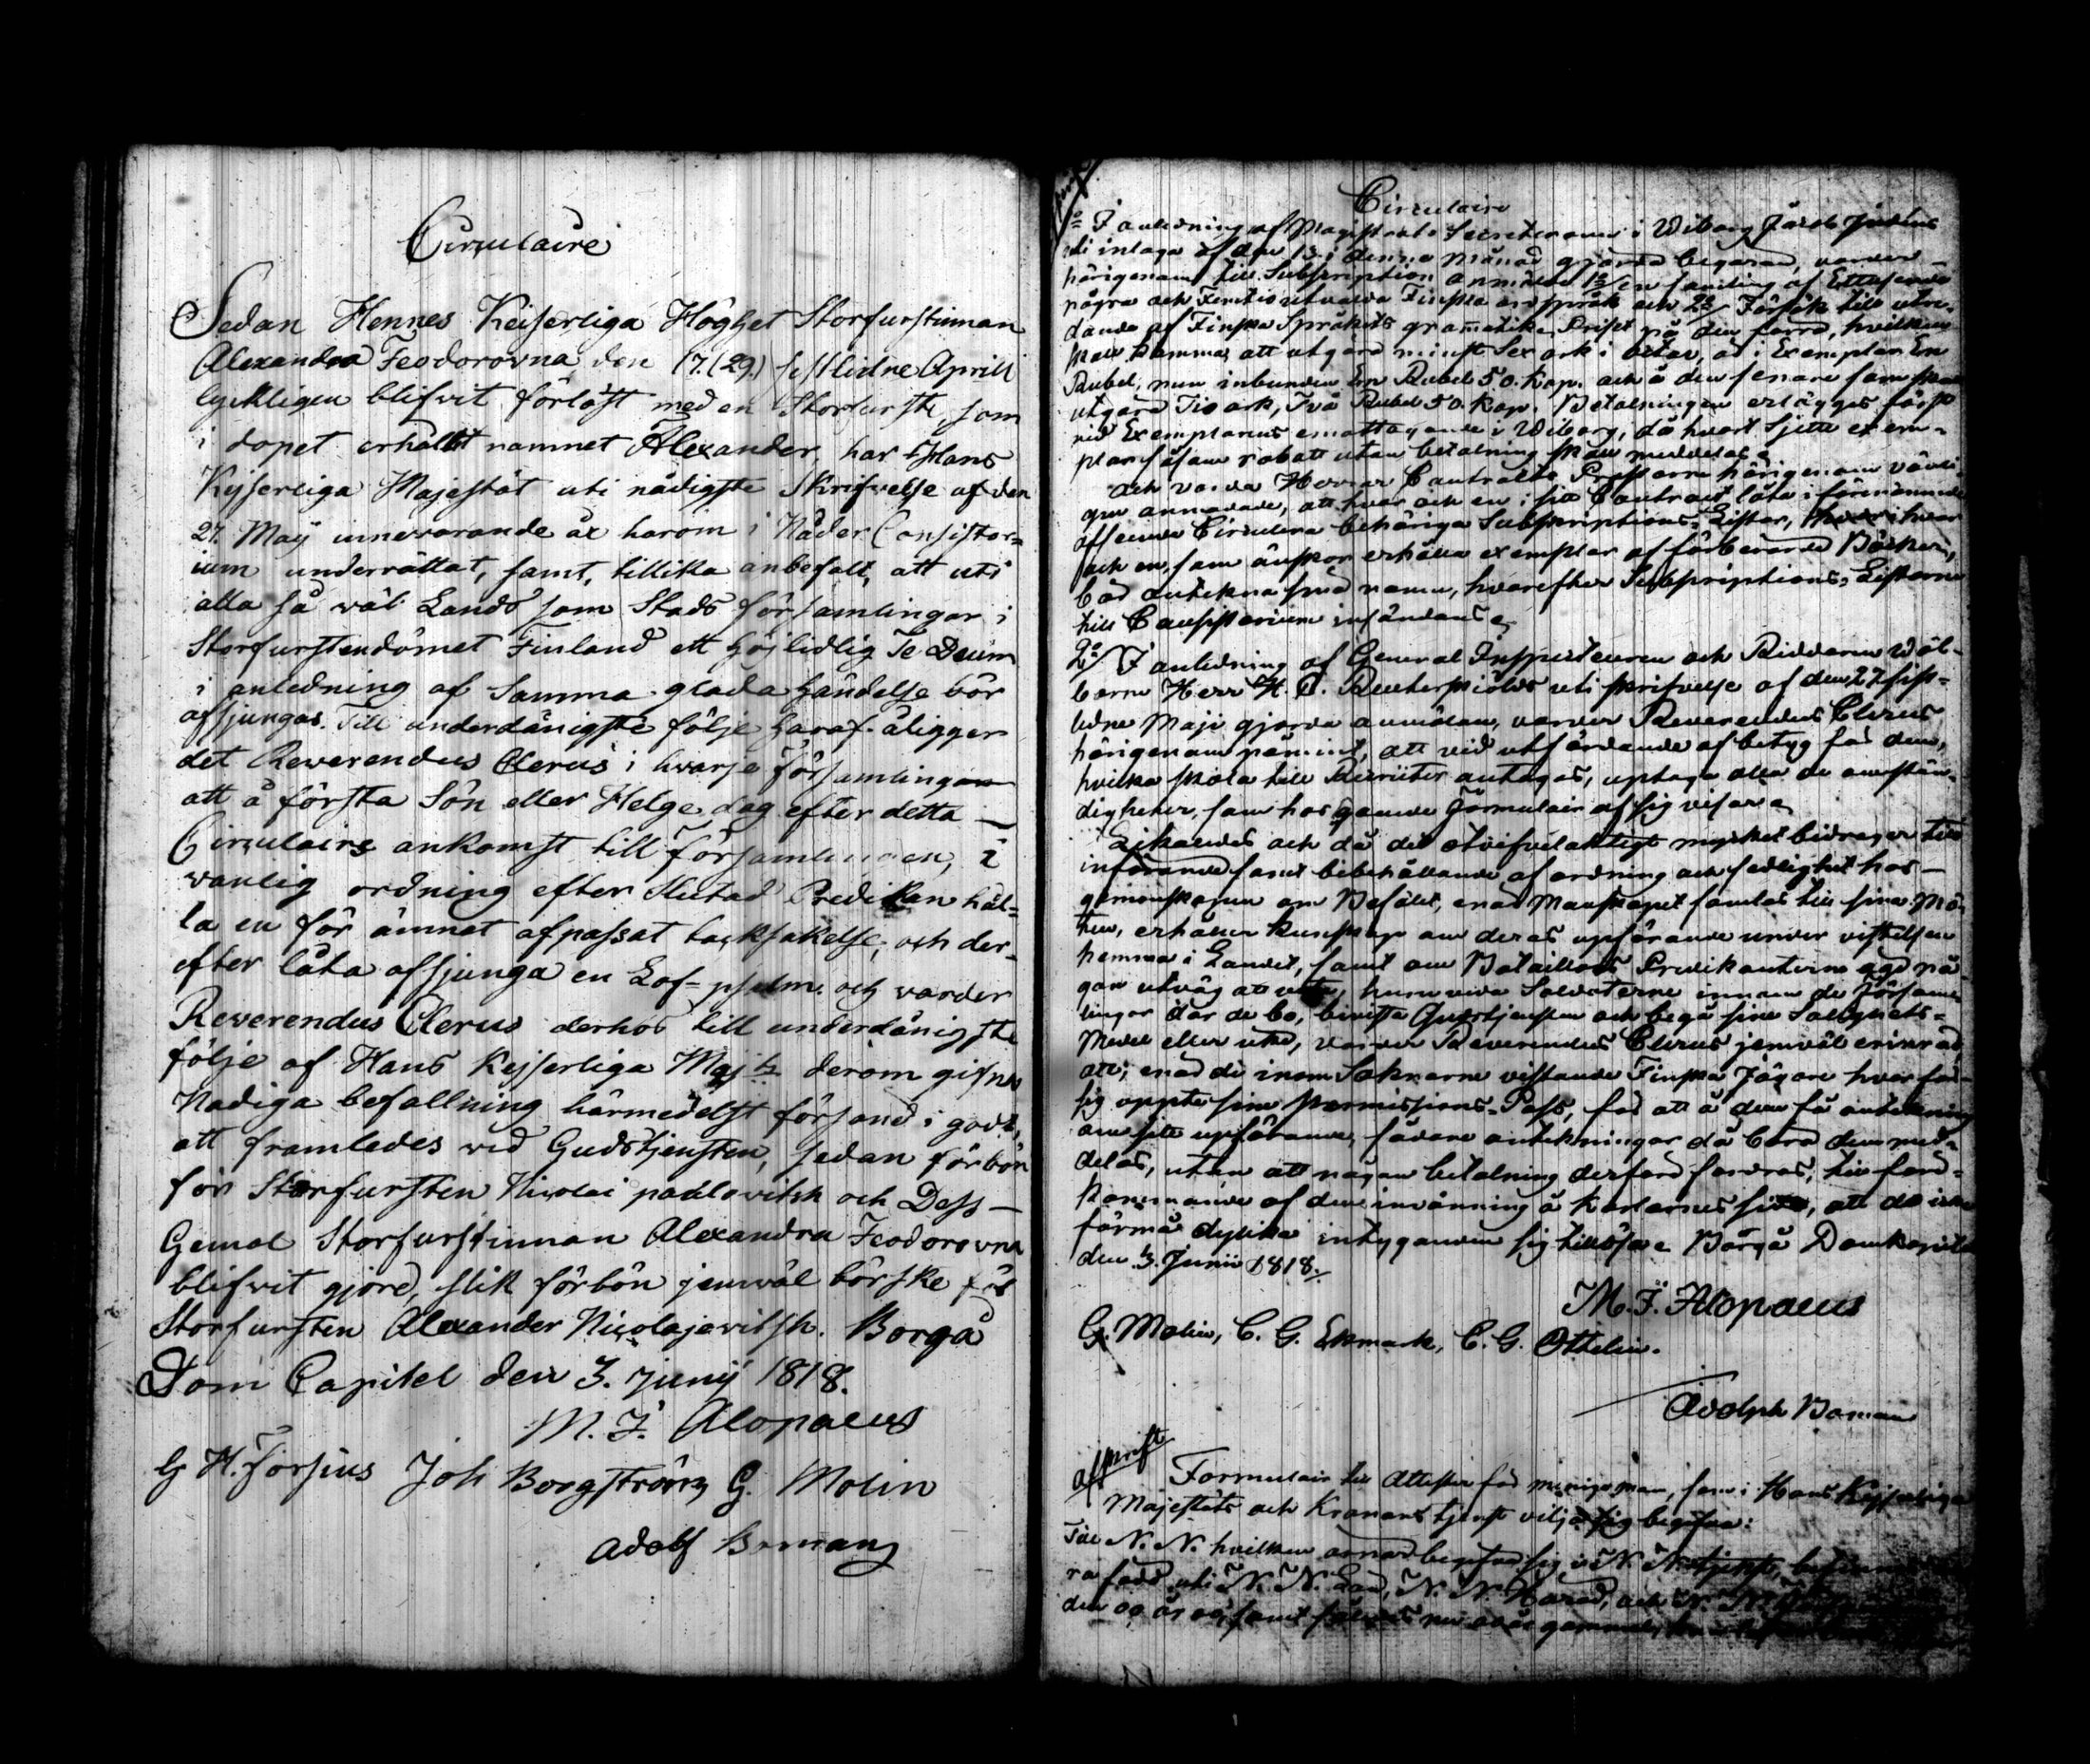 Circulaire
Sedan Hennes Keiserliga Höghet Storfurstinnan
Alexandra Feodorovna den 17.(29.) sistlidne Aprill
lyckligen blifvit förlöst med en Storfurste, som
i dopet erhållit namnet Alexander, har Hans
Kejserliga Majestät uti nådigste Skrifvelse af den
27. Maÿ innevarande år härom i Nåder Consistor=
ium underrättat, samt, tillika anbefalt, att uti
alla så väl Lands som Stads församlingar i
Storfurstendömet Finland ett högtidlig Te Deum
i anledning af Samma glada händelse bör
afsjungas. Till underdånigste följe haraf åligger
det Reverendus Clerus i hvarje församlingar
att å första Sön eller Helge dag efter detta —
Circulairs ankomst till Församlingen, i
vanlig ordning efter slutad Predikan hål=
la en för ämnet afpassat tacksäkelse, och der=
efter låta afsjunga en Lof=psalm. och varder
Reverendus Clerus derhos till underdånigste
följe af Hans Kejserliga Maj:ts derom gifne
Nadiga befallning härmedelst försand i godt,
att framledes vid Gudstjensten, sedan förbön
för Storfursten Nicolai pavlovitsh och Dess —
Gemål Storfurstinnan Alexandra Feodorovna
blifvit gjord, slik förbön jemväl bör ske för
Storfursten Alexander Nicolajevitsh. Borgå
Dom Capitel den 3. junÿ 1818.
M. J. Alopaeus
G H. Forsius Joh Borgström G. Molin
Adolf Boman
Circulaire
I anledning af Magistrats Secreteraren i Wiborg Jacob Judens
uti inlaga af den 13. i denna månad gjorda begäran, varder
härigenom till Subscription anmäld 1o/ en samling af Ettusende
några och Femtio utvalda Finska ordspråk och 2o/ Försök till utre-
dande af Finska Språkets gramatik. Priset på den förra, hvilken
skall komma att utgöra minst Sex ark i octav, är i Exemplar En
Rubel, men inbunden En Rubel 50. Kop. och å den senare som skall
utgöra Tio ark, Två Rubel 50. Kop. Betalningen erlägges först
vid Exemplarens emottagande i Wiborg, då hvart Sjette exem-
plar såsom rabatt utan betalning skall meddelas.
Och varda Herrar Contracts Prostarne härigenom vänli-
gen anmodade, att hvar och en i sitt Contract låta i förenämnde
afseende Circulera behöriga Subscriptions-Listor, hvar
och en, som önskar erhålla exemplar af förberörde Böcker,
bör anteckna sitt namn, hvarefter Subscriptions-Listorne
till Consistorium insändas.
2o/ I anledning af General Inspecteuren och Riddaren Wäl-
borne Herr H. O. Reuterskiölds uti skrifvelse af den 22 sist-
ledne Maji gjorda anmälan, varder Reverendus Clerus
härigenom påmint, att vid utfärdande af betyg för dem,
hvilka skola till Recruter antagas, uptaga alla de omstän-
digheter, som hos gående Formulair afsig visar.
Likaledes och då det otvifvelaktigt mycket bidrager till
införande samt bibehållande af ordning och sedlighet hos —
gemenskapen om Befälet, enär Manskapet samlas till sina Mö-
ten, erhåller kunskap om deras upförande under vistelsen
hemma i Landet, samt om Bataillons Predikanterne ega nå-
gon utväg att veta, huruvida Soldaterne innom de Församl-
lingar där de bo, bivista Gudstjensten och begå sine Salighets-
Medel eller icke, varder Reverendus Clerus jemväl erinrad
att, enär de inom Soknarne vistande Finska Jägare hvar för
sig uppte sine Permissions-Pass, för att å dem få anteckning
om sitt upförande, sådane antekningar då böra dem med-
delas, utan att någon betalning derföre fordras, till före-
kommande af den invänning å Karlarnes sida, att de icke
förmå dylika intyganden sig tillösa. Borgå Domkapitel
den 3. Junii 1818.
M. J. Alopaeus
G. Molin, C. G. Ekmark, C. G. Ottelin.
Adolph Boman
Afskrift
Formulair till Attester för menige man, som i Hans Kejserliga
Majestäts och Kronans tjenst vilja sig begifva:
Till N. N. hvilken ärnar begifva sig i N. N. tjenst,
ra född uti N. N. Län, N. N. Härad, och N. N.
den 00 år 00, samt således nu 00 år gammal,